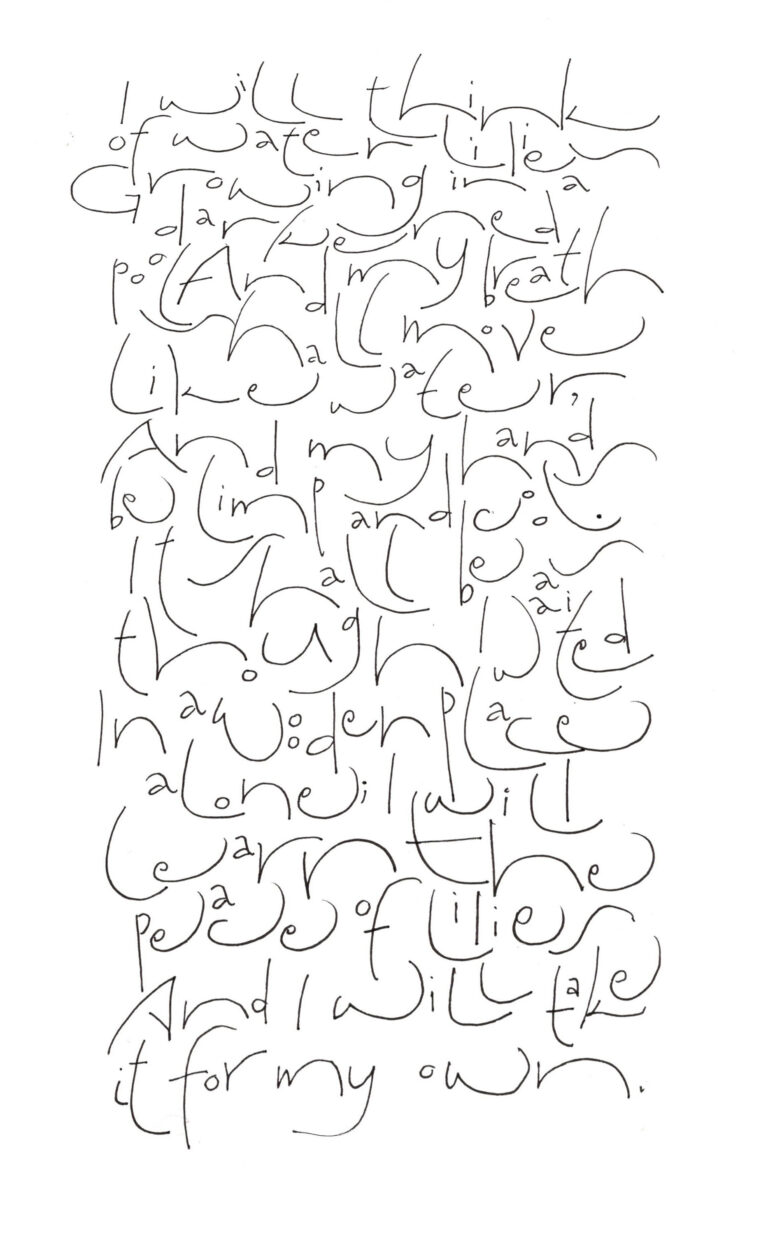 I will think
of water lilies
Growing in a
darkened
pool And my breath
shall move
like water,
And my hands
be limp and cool.
It shall be as
though I waited
In a wooden place
alone; I will
learn the
peace of lilies
And I will take
it for my own.